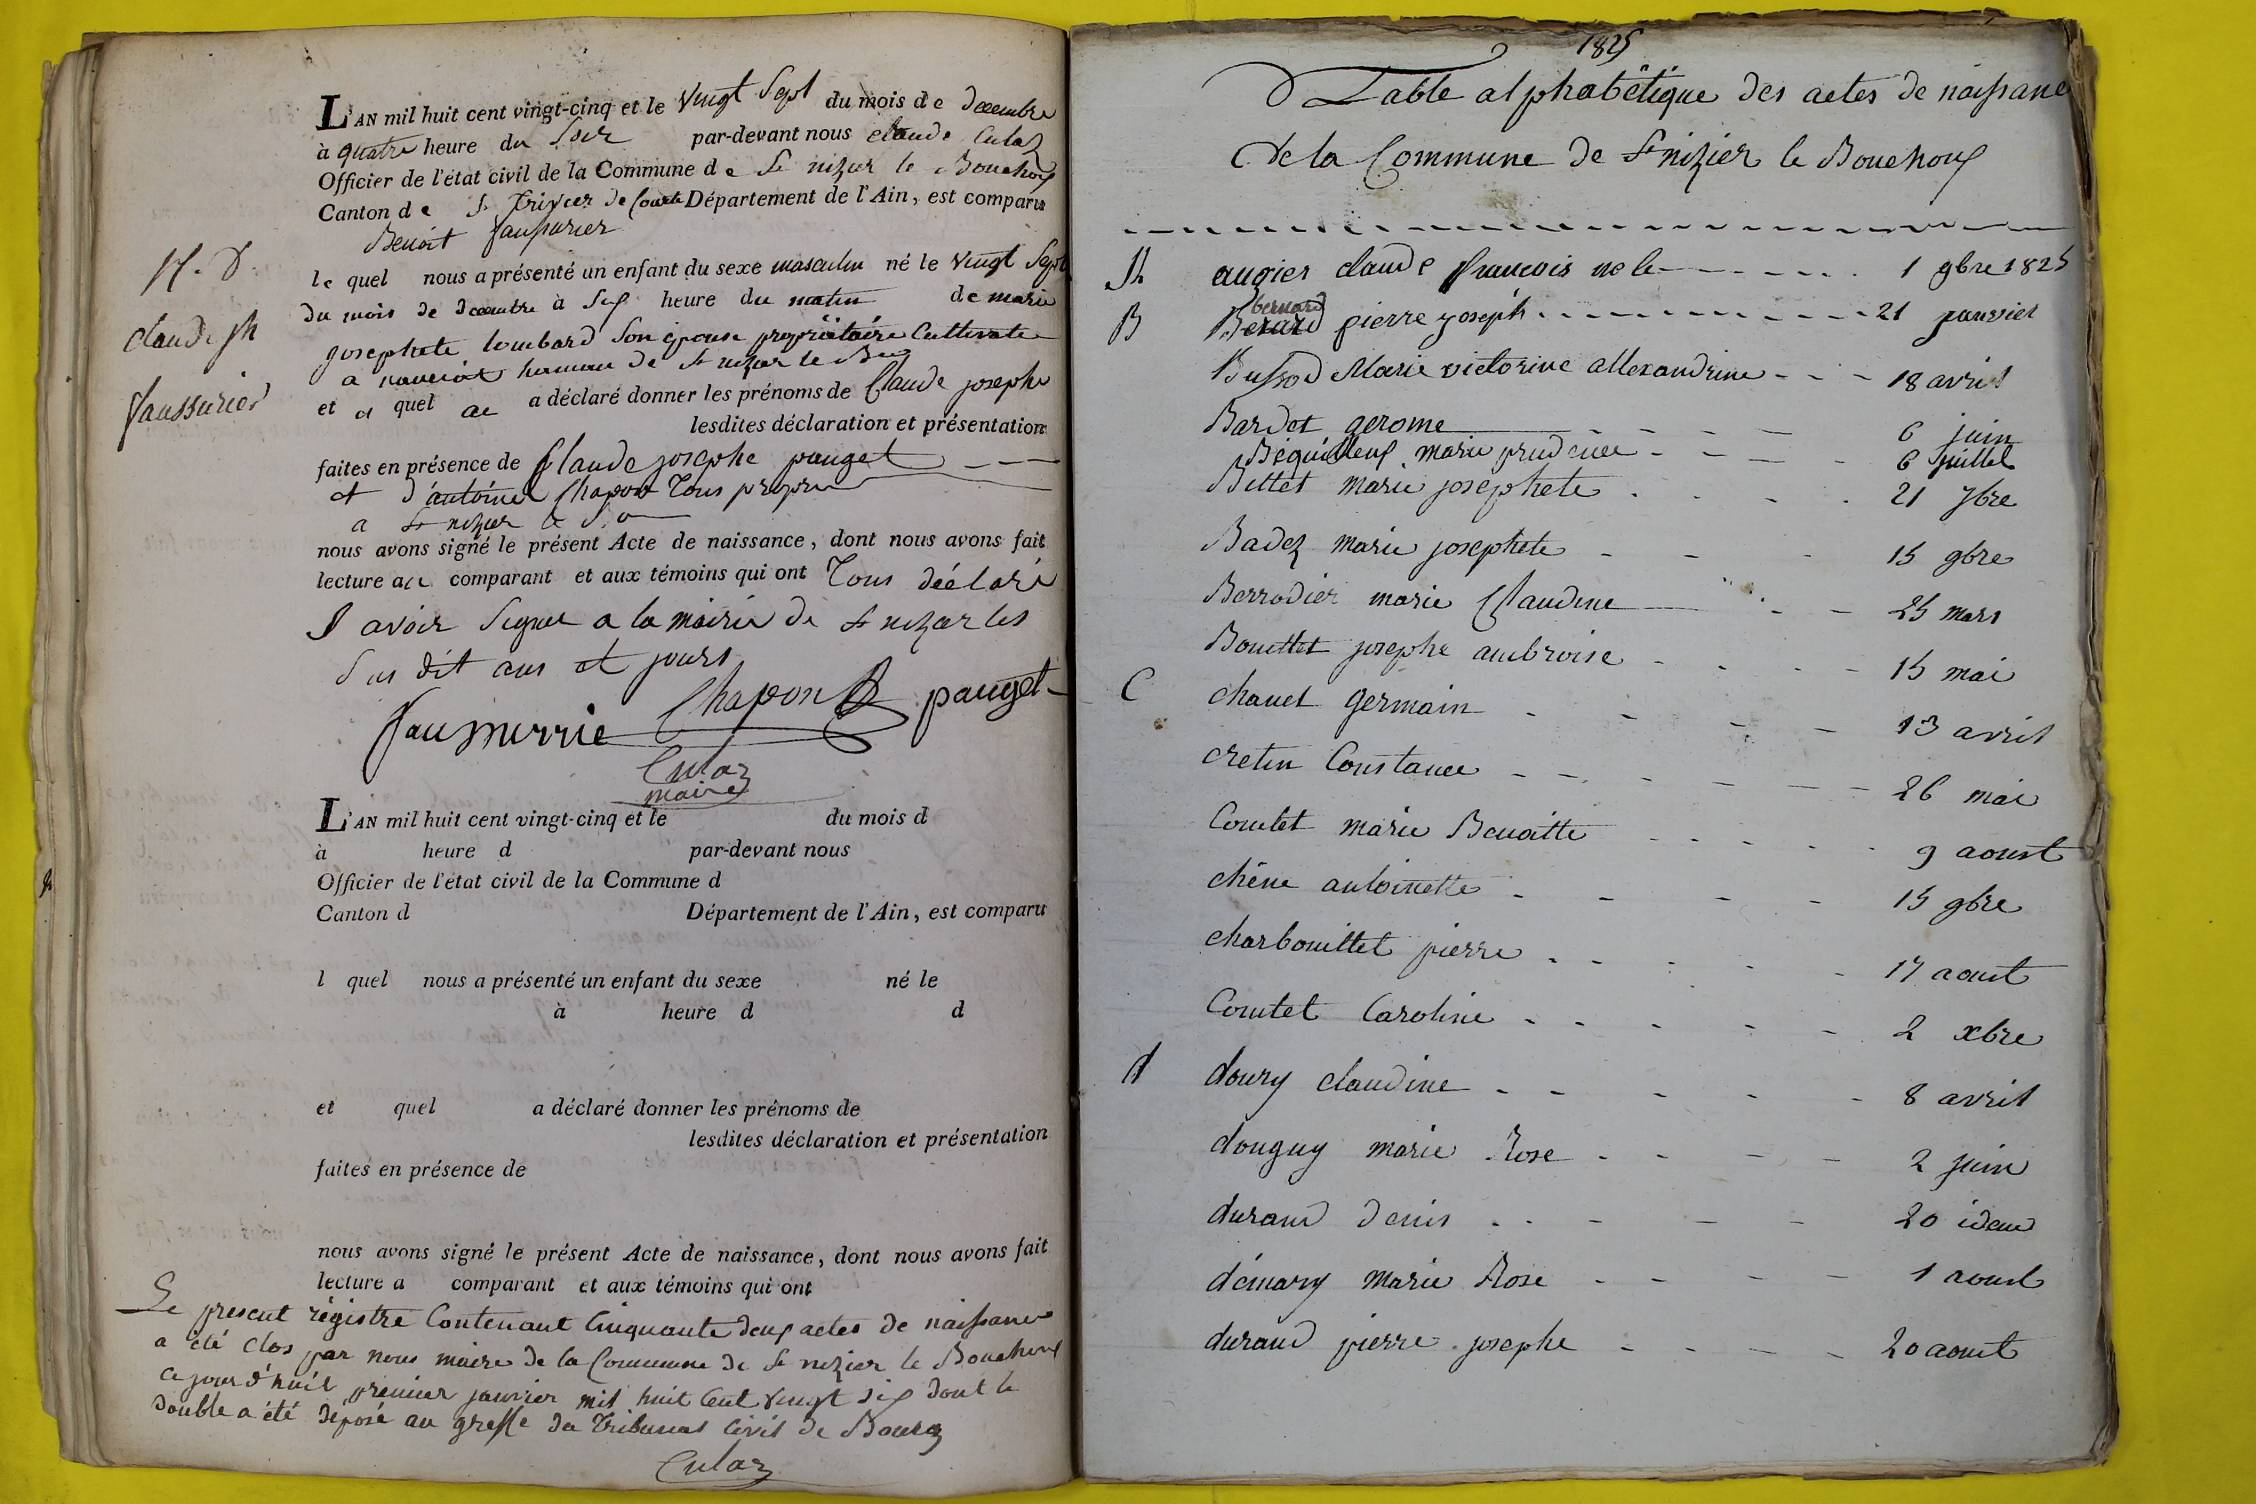 L'AN mil huit cent vingt-cinq et le vingt Sept du mois de decembre
à quatre heure du Soir par-devant nous claude Culaz
Officier de l'état civil de la Commune de St nizier le Bouchoux
Canton de St Trivier de Courte Département de l'Ain, est comparu
Benoit faussurier
le quel nous a présenté un enfant du sexe masculin né le vingt Sept
du mois de decembre à Six heure du matin de marie
josephete lombard Son épouse propriétaire Cultivate
a hameau de St nizier le
et a quel a déclaré donner les prénoms de Claude josephe
lesdites déclaration et présentation
faites en présence de Claude josephe pauget
et d'antoine Chapon Tous propre
a St nizier le
nous avons signé le présent Acte de naissance, dont nous avons fait
lecture au comparant et aux témoins qui ont Tous déclaré
avoir Signer a la mairie de St nizier les
Sus dit ans et jours
Chapon pauget
Culaz
maire
N. D.
claude jh
faussurier
L'AN mil huit cent vingt-cinq et le du mois d
à heure d par-devant nous
Officier de l'état civil de la Commune d
Canton d Département de l'Ain, est comparu
l quel nous a présenté un enfant du sexe né le
à heure d d
et quel a déclaré donner les prénoms de
lesdites déclaration et présentation
faites en présence de
nous avons signé le présent Acte de naissance, dont nous avons fait
lecture a comparant et aux témoins qui ont
Le present régistre Contenant Cinquante deux actes de naissance
a été clos par nous maire de la Commune de St nizier le Bouchoux
ce jour d'huit premier janvier mil huit Cent vingt Six dont le
double a été déposé au greffe du Tribunal Civil de Bourg
Culaz
1825
Table alphabétique des actes de naissance
de la Commune de St nizier le Bouchoux
A augier claude francois né le 1 9bre 1825
B bernard pierre joseph 21 janvier
Bussod Marie victorine allexandrine 18 avril
Bardet gerome 6 juin
Béquilleux marie prudence 6 juillet
Bittet marie josephete 21 7bre
Badez marie josephete 15 9bre
Berrodier marie Claudine 25 mars
Bouillet josephe ambroise 15 mai
C chanel germain 13 avril
cretin Constance 26 mai
Comtet marie Benoitte 9 aoust
chêne antoinette 15 9bre
charbouillet pierre 17 aout
Comtet Caroline 2 xbre
d doury claudine 8 avril
douguy marie Rose 2 juin
durand denis 20 idem
démary marie Rose 1 aoust
durand pierre josephe 20 aout